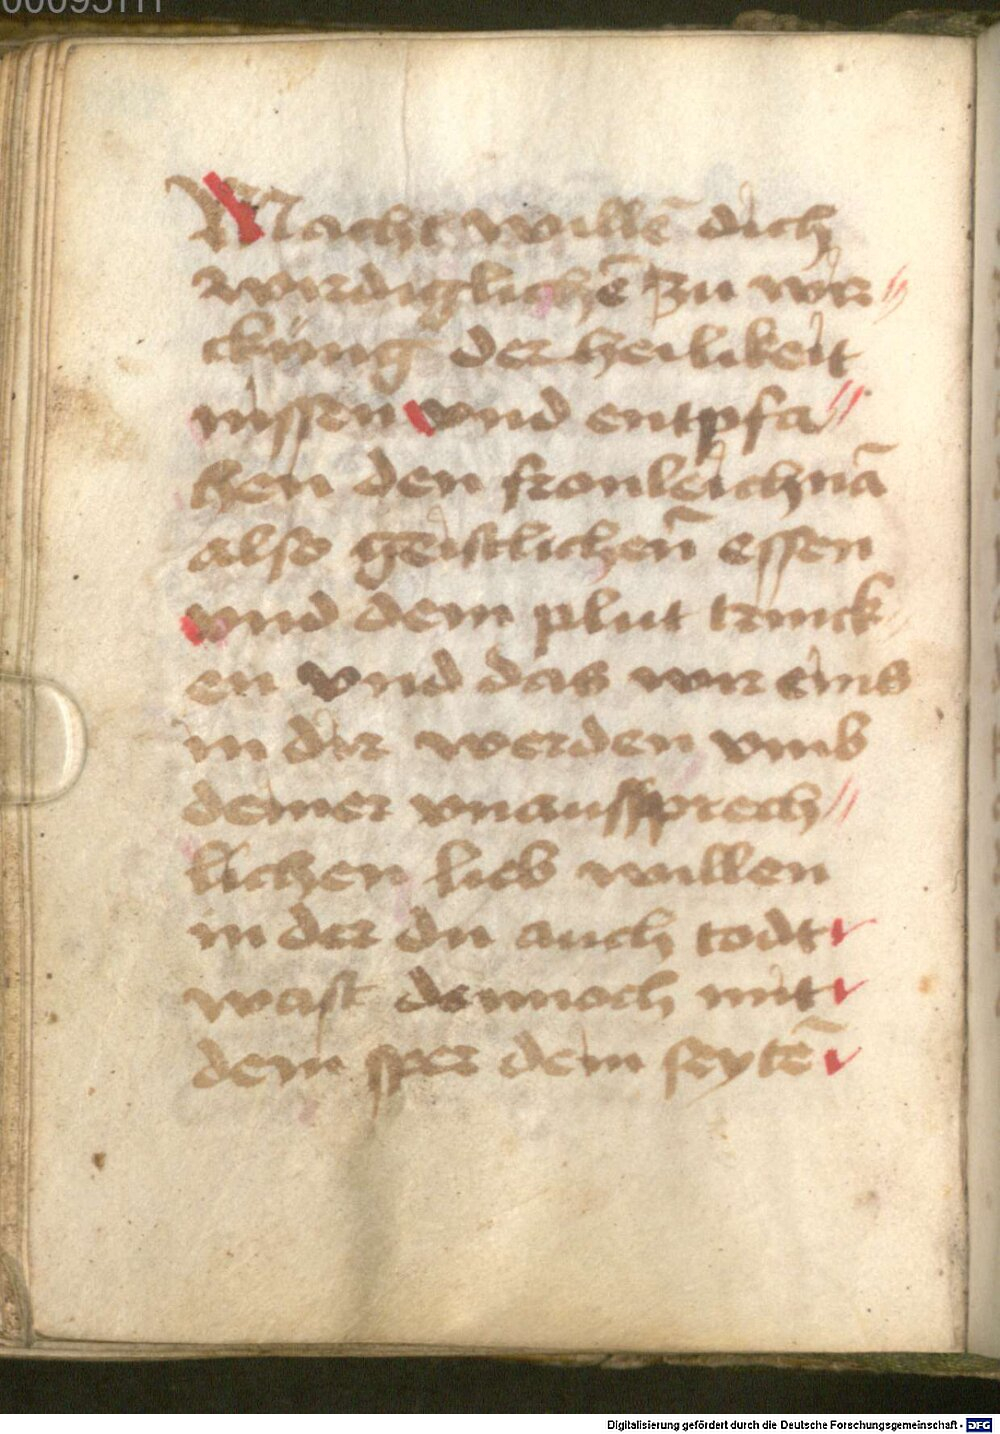 Macht willē dich
wirdiglichē zu wir〃
ckung der heilikeit
nissen vnd entpfa〃
hen den fronleichnā
also geistlichen̄ essen
vnd dem plut trinck
en vnd das wir eins
in dir werden vmb
deiner vnaussprech〃
lichen lieb willen
in der du auch todt
wast dennoch mit
dem sper dein seytē
Digitalisierung gefördert durch die Deutsche Forschungsgemeinschaft - DFG